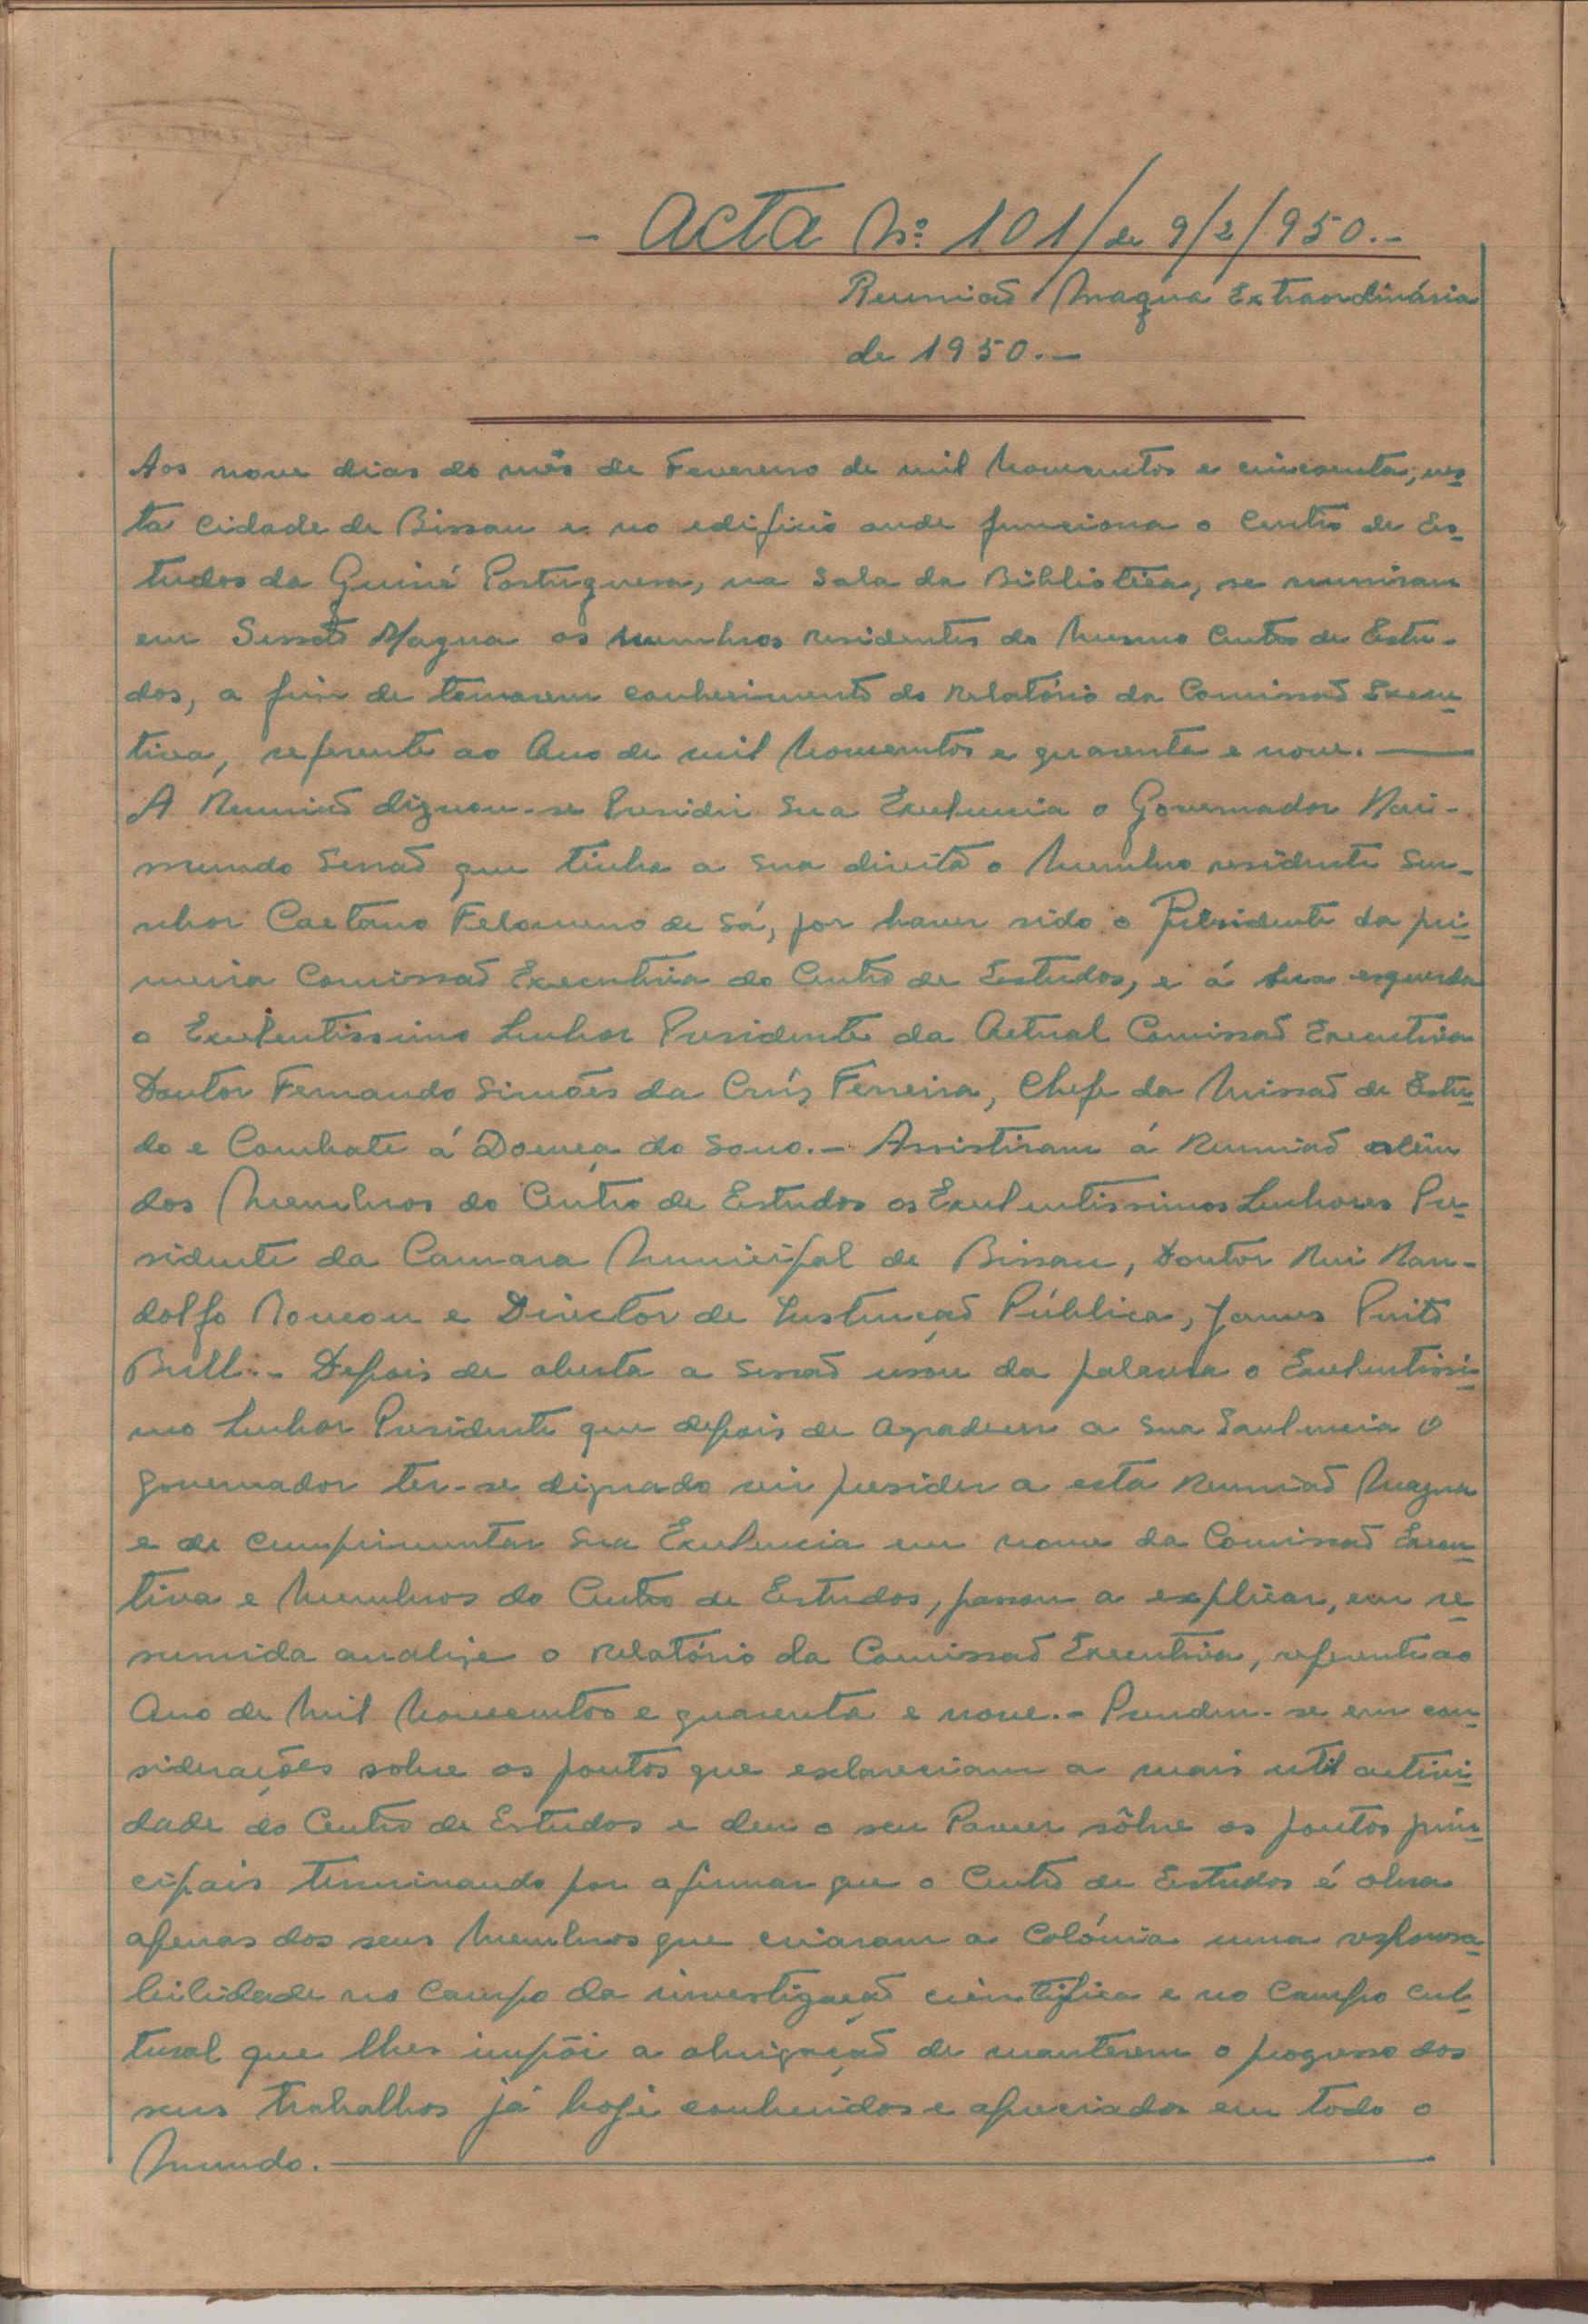 - Acta Nº 101/de 9/2/950.-
Reunião Magna Extraordinária
de 1950.-
Aos nove dias do mês de Fevereiro de mil Novecentos e cincoenta, nes-
ta Cidade de Bissau e no edificio onde funciona o Centro de Es-
tudos da Guiné Portuguesa, na Sala da Biblioteca, se reuniram
em Sessão Magna os membros residentes do Mesmo Centro de Estu-
dos, a fim de tomarem conhecimento do Relatório da Comissão Execu-
tiva, referente ao Ano de mil Novecentos e quarenta e nove.
A Reunião dignou-se Presidir Sua Excelencia o Governador Rai-
mundo Serrão que tinha a Sua direita o Membro residente Se-
nhor Caetano Felomeno de Sá, por haver sido o Presidente da pri-
meira Comissão Executiva do Centro de Estudos, e á sua esquerda
o Excelentissimo Senhor Presidente da Actual Comissão Executiva
Doutor Fernando Simões da Crúz Ferreira, Chefe da Missão de Estu-
do e Combate á Doença do Sono.- Assistiram á Reunião além
dos Membros do Centro de Estudos os Excelentissimos Senhores Pre-
sidente da Camara Municipal de Bissau, Doutor Rui Ran-
dolfo e Director de Instrução Pública, James Pinto
Bull.- Depois de aberta a Sessão usou da palavra o Excelentissi-
mo Senhor Presidente que depois de Agradecer a Sua Excelencia O
Governador ter-se dignado vir presider a esta Reunião Magna
e de cumprimentar Sua Excelencia em nome da Comissão Execu-
tiva e Membros do Centro de Estudos, passou a explicar, em re-
sumida analize o Relatório da Comissão Executiva, referente ao
Ano de Mil Novecentos e quarenta e nove.- Prendeu-se em con-
siderações sobre os pontos que esclareciam a mais util activi-
dade do Centro de Estudos e deu o seu Parecer sôbre os pontos prin-
cipais terminando por afirmar que o Centro de Estudos é obra
apenas dos seus Membros que criaram a Colónia uma responsa-
bilidade no Campo da investigação cientifica e no Campo cul-
tural que lhes impõi a obrigação de manterem o progresso dos
seus trabalhos já hoje conhecidos e apreciados em todo o
Mundo.